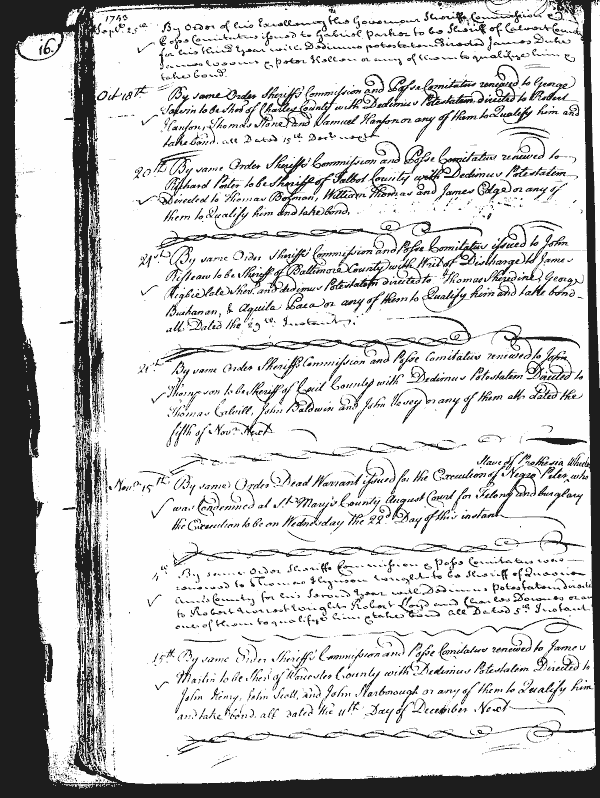 16.
1743
Sept. 25th By Order of his Excellency the Governour Sheriffs Commission &
Posse Comitatus issued to Gabriel Parker to be Sheriff of Calvert County
for his third year with Dedimus potestatem Directed James Duke
James & Peter or any of them to qualify him &
take bond
Oct 18th By same Order Sheriffs Commission and Posse Comitatus renewed to George
to be Sher. of Charles County with Dedimus Potestatem directed to Robert
Hanson, Thomas Stone, and Samuel Hanson or any of them to Qualify him and
take bond. all Dated 15th next
20th By same Order Sheriffs Commission and Posse Comitatus renewed to
Richard Porter to be Sheriff of Talbot County with Dedimus Potestatem
Directed to Thomas Bozman, William Thomas and James Edge or any of
them to Qualify him and take bond.
21st By same Order Sheriffs Commission and Posse Comitatus issued to John
Risteau to be Sheriff of Baltimore County with Writ of Discharge to James
Rigbie late Sher. and Dedimus Potestatem directed to Thomas Sheredine, George
Buchanan, & Aquila Paca or any of them to Qualify him and take bond
all Dated the 29th Instant.
By same Order Sheriffs Commission and Posse Comitatus renewed to John
Thompson to be Sheriff of Cecil County with Dedimus Potestatem Directed to
Thomas Colvill, John Baldwin and John Veasy or any of them all dated the
fifth of Novr. Next
Slave of Prothesia
Novr. 15th By same Order Dead Warrant issued for the Execution of Negro Peter, who
was Condemned at St. Mary's County August Court for Felony and burglary
the Execution to be on Wednesday the 22d Day of this instant
By same order Sheriffs Commission & Posse Comitatus
renewed to Thomas Hynson Wright to be Sheriff of Queen
Ann's County for his Second Year with Dedimus Potestatem directed
to Robert Norrest Wright Robert Lloyd and Charles Downes or any
one of them to qualify him & take bond all Dated 5th Instant
15th By same Order Sheriffs Commission and Posse Comitatus renewed to James
Martin to be Sher. of Worcester County with Dedimus Potestatem Directed to
John Henry, John Scott, and John Scarborough or any of them to Qualify him
and take bond. all dated the 11th Day of December Next